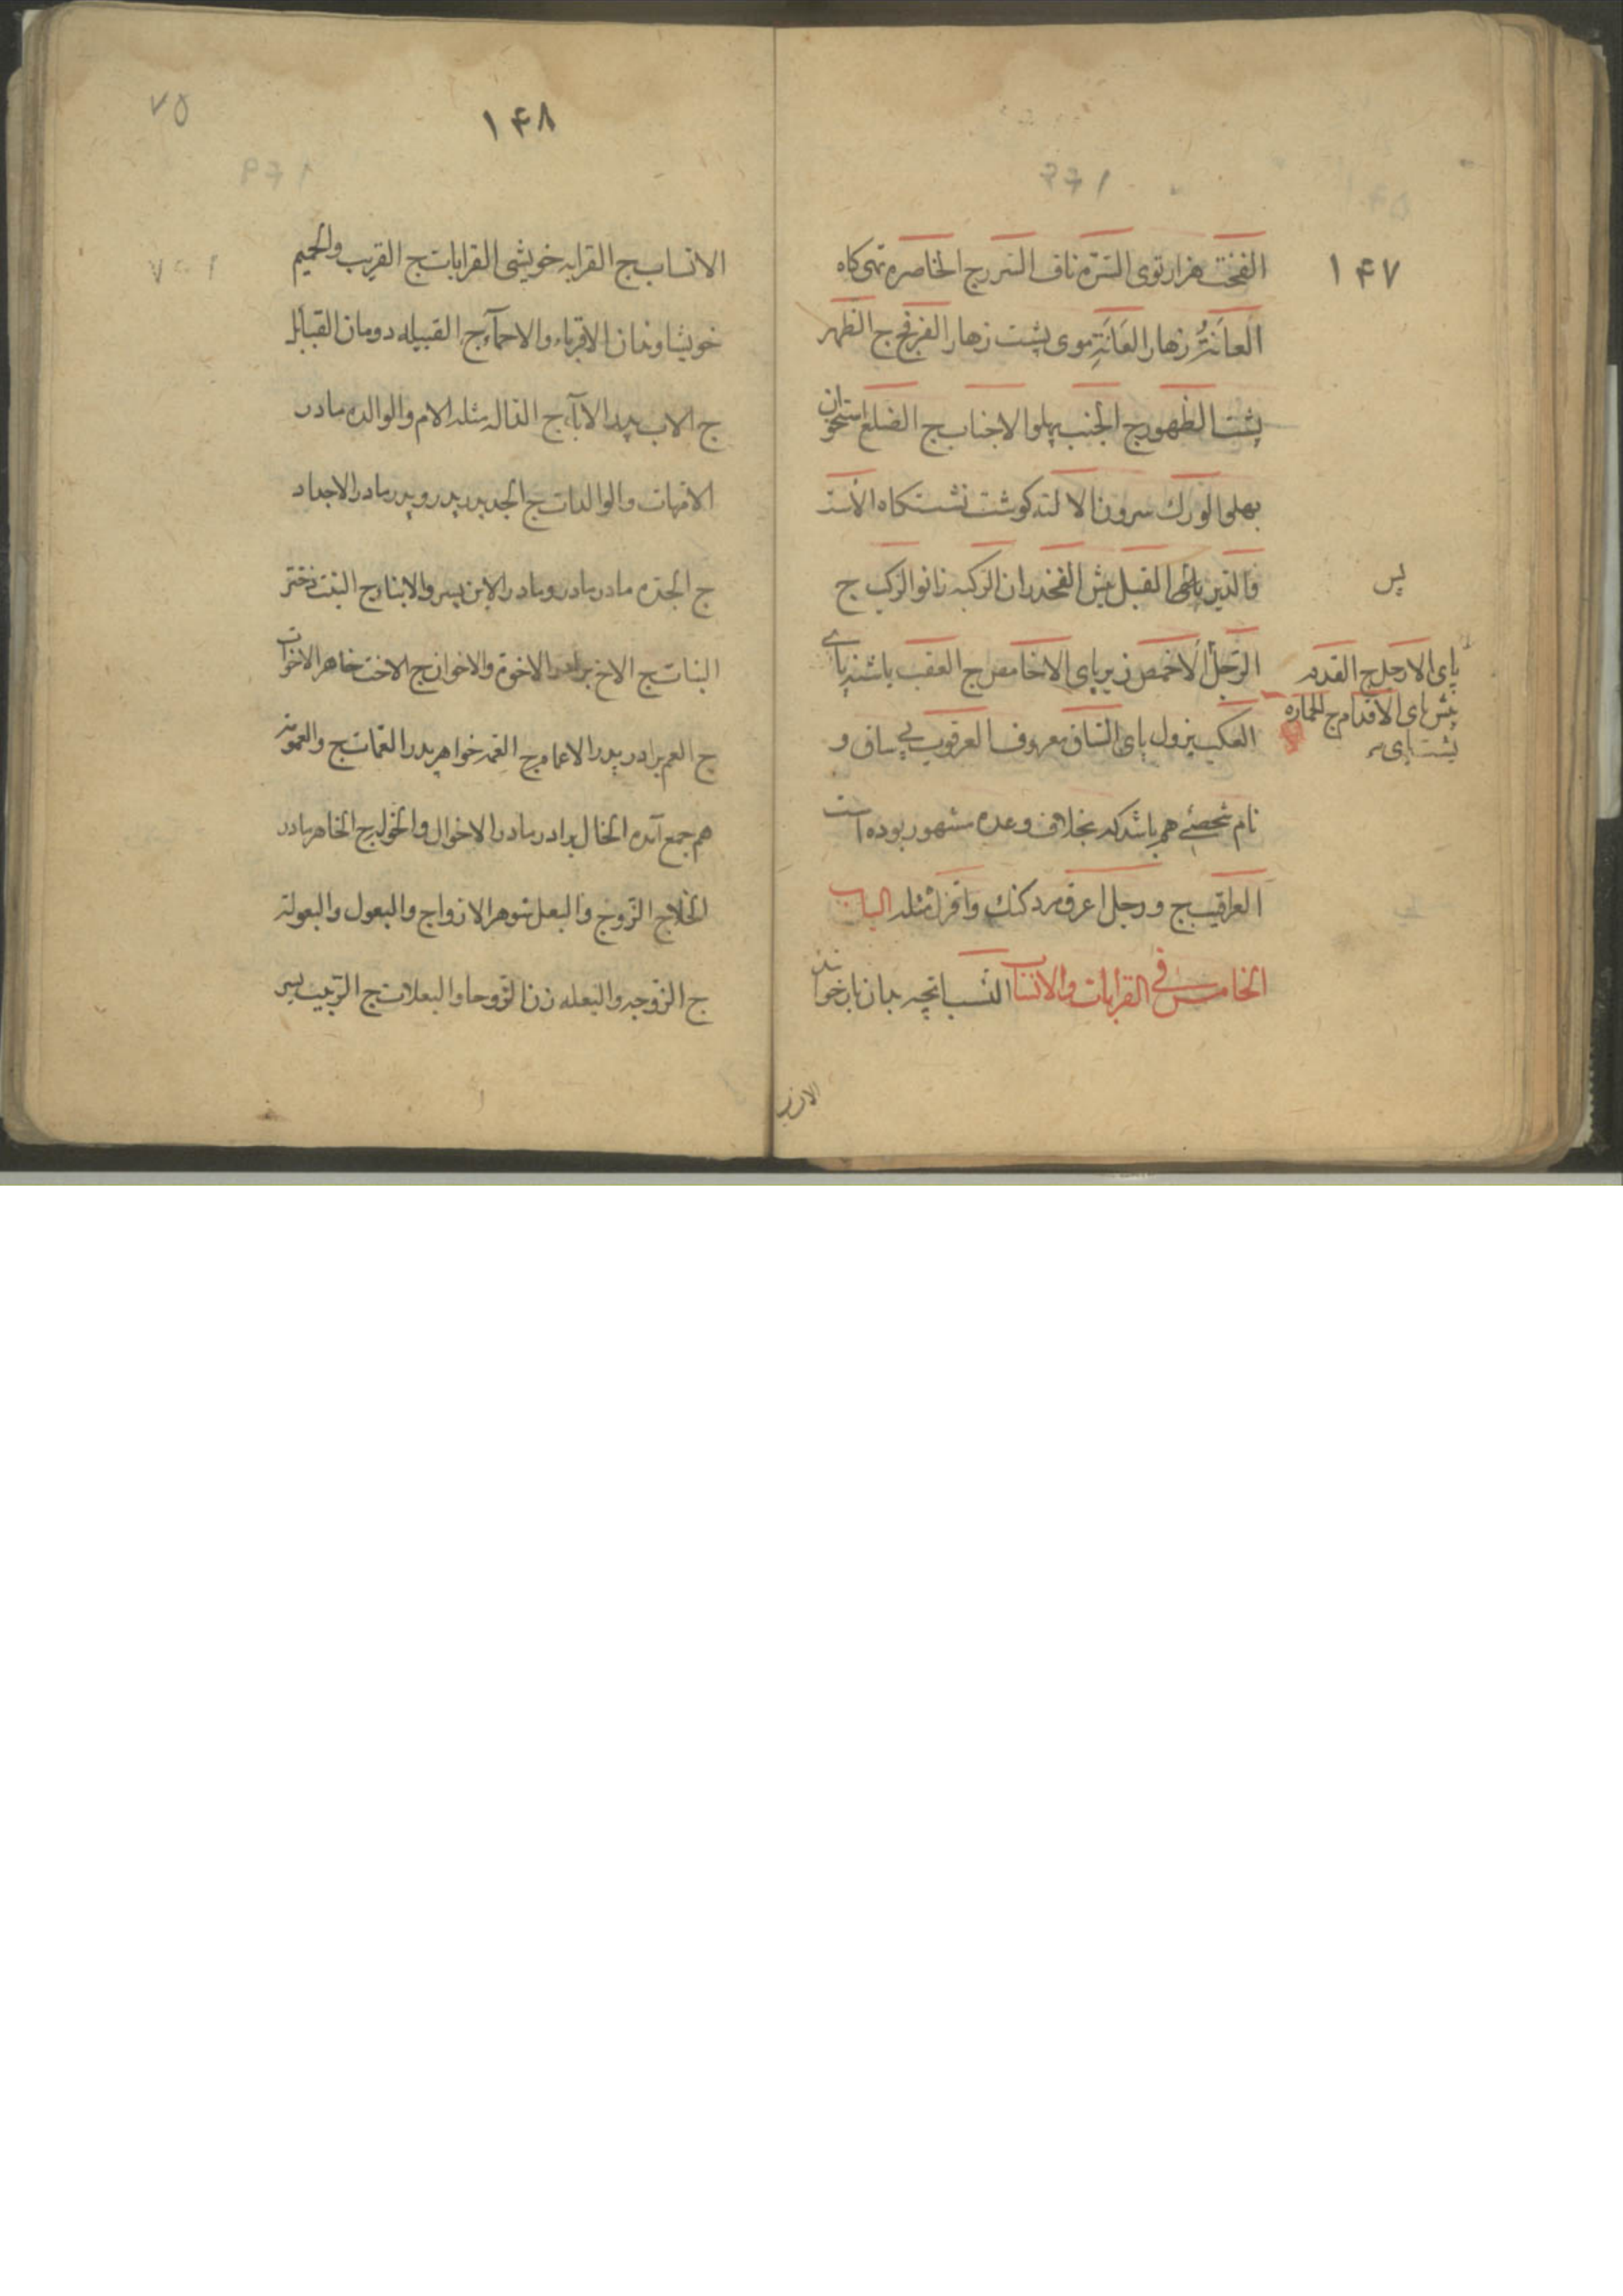 ۱۴۷
الفحث هزار توی السّرّه ناف السرر ج الخاصره تهی کاه
العانَةُ زهار العَانَةِ موی پشت زهار الفرج ج الظهر
پشت الظهور ج الجنب پهلو الاجناب ج الضلع استخوان
پهلو الورك سرون الالته کوشت نشستکاه الأست
والدّبر القبل پیش الفخذ ران الرکبه زانو الرکب ج
پس
الرّجل الاخمص زیر پای الاخامص ج العقب پاشنه پای
پای الارجل ج القدم
پیش پای الاقدام ج الحماره
پشت پای
الکعب بزول پای السّاق معروف العرقوب پی ساق و
نام شخصی هم باشد که بخلاف وعده مشهور بوده است
العراقیب ج ورجل اعرق مرد کنك واقزل مثله الباب
الخامس فی القرابات والانساب النسب انچه بدان باز خوانند
۱۴۸
۷۵
الانساب ج القرابه خویشی القرابات ج القریب والحمیم
خویشاوندان الاقرباء والاحمآء ج القبیله دومان القبایل
ج الاب پدر الابآء ج مثله الام والوالده مادر
الامّهات والوالدات ج الجد پدر پدر و پدر مادر الاجداد
ج الجدّه مادر مادر و مادر الابن پسر والابنا ج البنت دختر
البنات ج الاخ برادر الاخوة والاخوان ج الاخت خاهر الاخوات
ج العم برادر پدر الاعمام ج العمه خواهر پدر العمّات ج والعمومة
هم جمع آمده الخال برادر مادر الاخوال والخوله ج الخاهر مادر
ج الزّوج والبعل شوهر الازواج والبعول والبعولة
ج الزّوجه والبعله زن الزّوجات والبعلات ج الرّبیب پسر